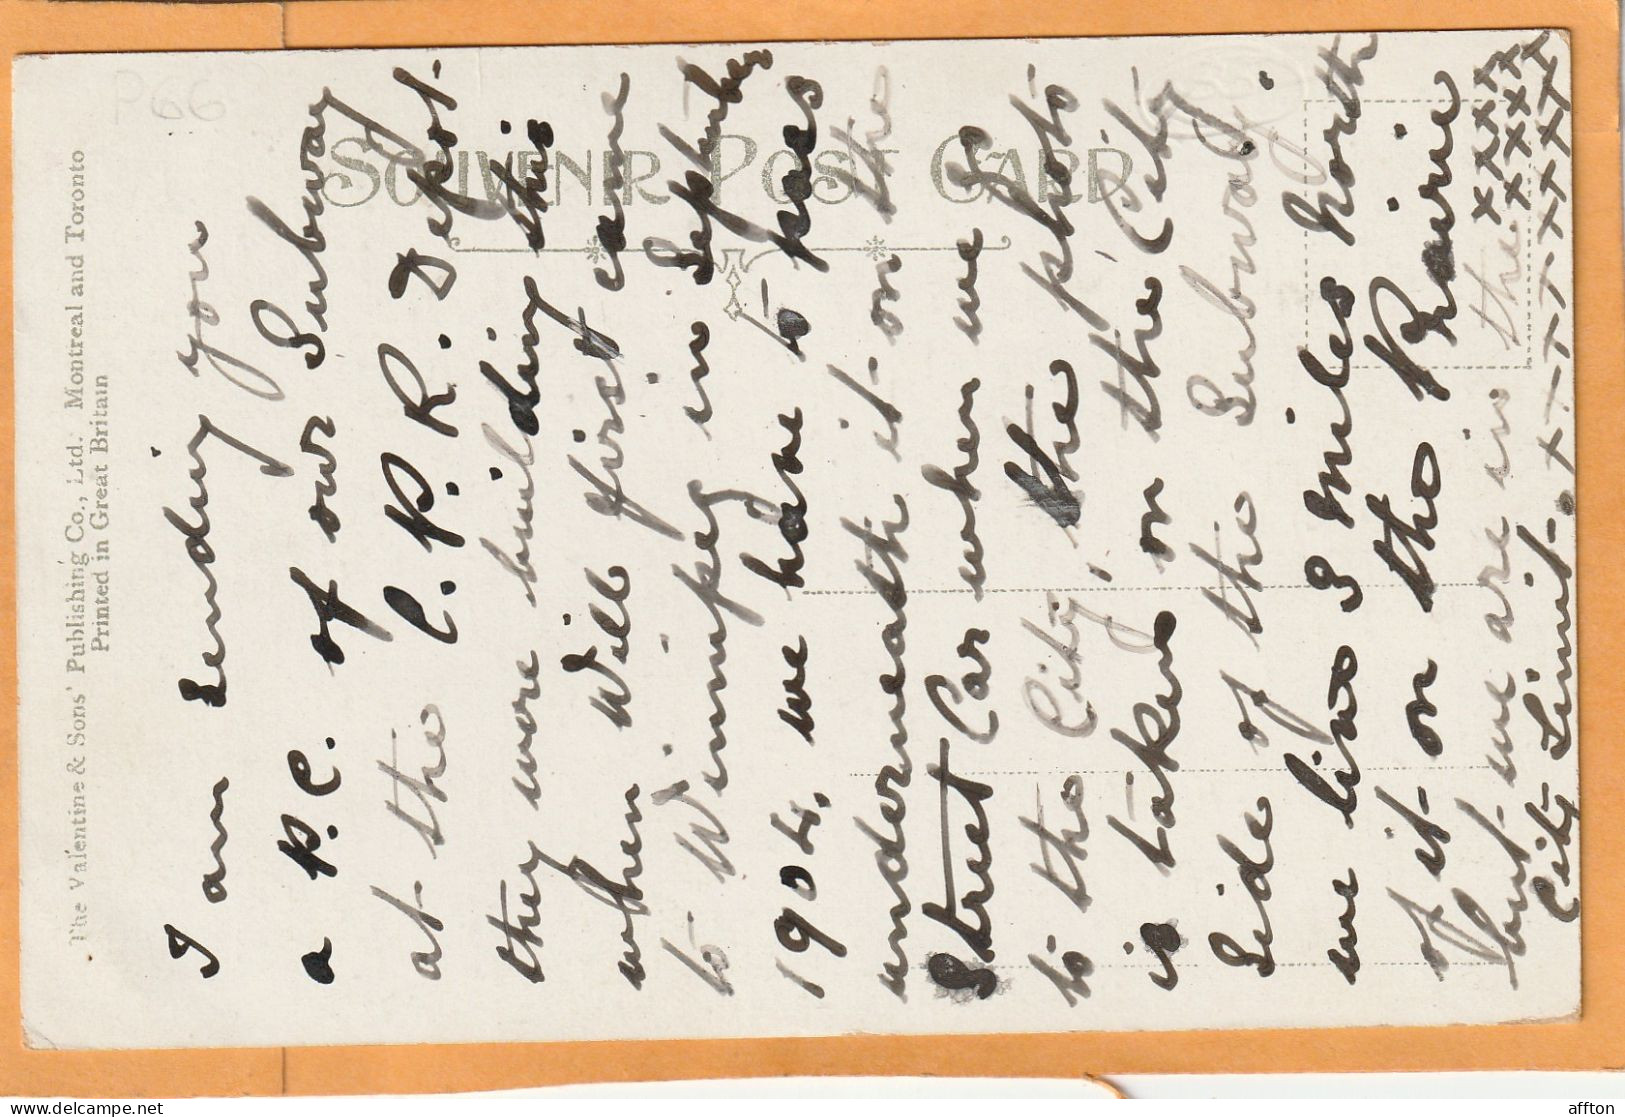 I am sending you
a P.C. of our Subway
at the C.P.R. Depot.
they were building this
when Will first came
to Winnipeg in September
1904, we have to pass
underneath it on the
Street Car when we go
to the City, the photo
is taken on the City
Side of the Subway.
we live 3 miles north
of it on the Prairie
but we are in the
City Limit.
xxxx
xxxxx
xxxxxxxxxx
SOUVENIR POST CARD
The Valentine & Sons' Publishing Co., Ltd. Montreal and Toronto
Printed in Great Britain
P66
affton